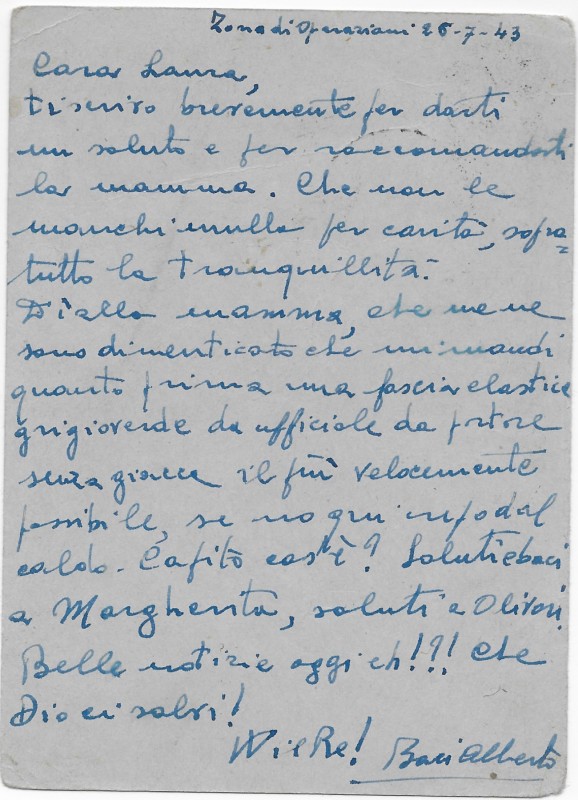 Zona di Operazioni 26-7-43
Cara Laura,
ti scrivo brevemente per darti
un saluto e per raccomandarti
la mamma. Che non le
manchi nulla per carità, sopra=
tutto la tranquillità.
Di' alla mamma, che me ne
sono dimenticato che mi mandi
quanto prima una fascia elastica
grigioverde da ufficiale da portare
senza giacca il più velocemente
possibile, se no qui crepo dal
caldo. Capito cos'è? Saluti e baci
a Margherita, saluti a Olivari.
Belle notizie oggi eh!?! Che
Dio ci salvi!
W il Re! Baci Alberto